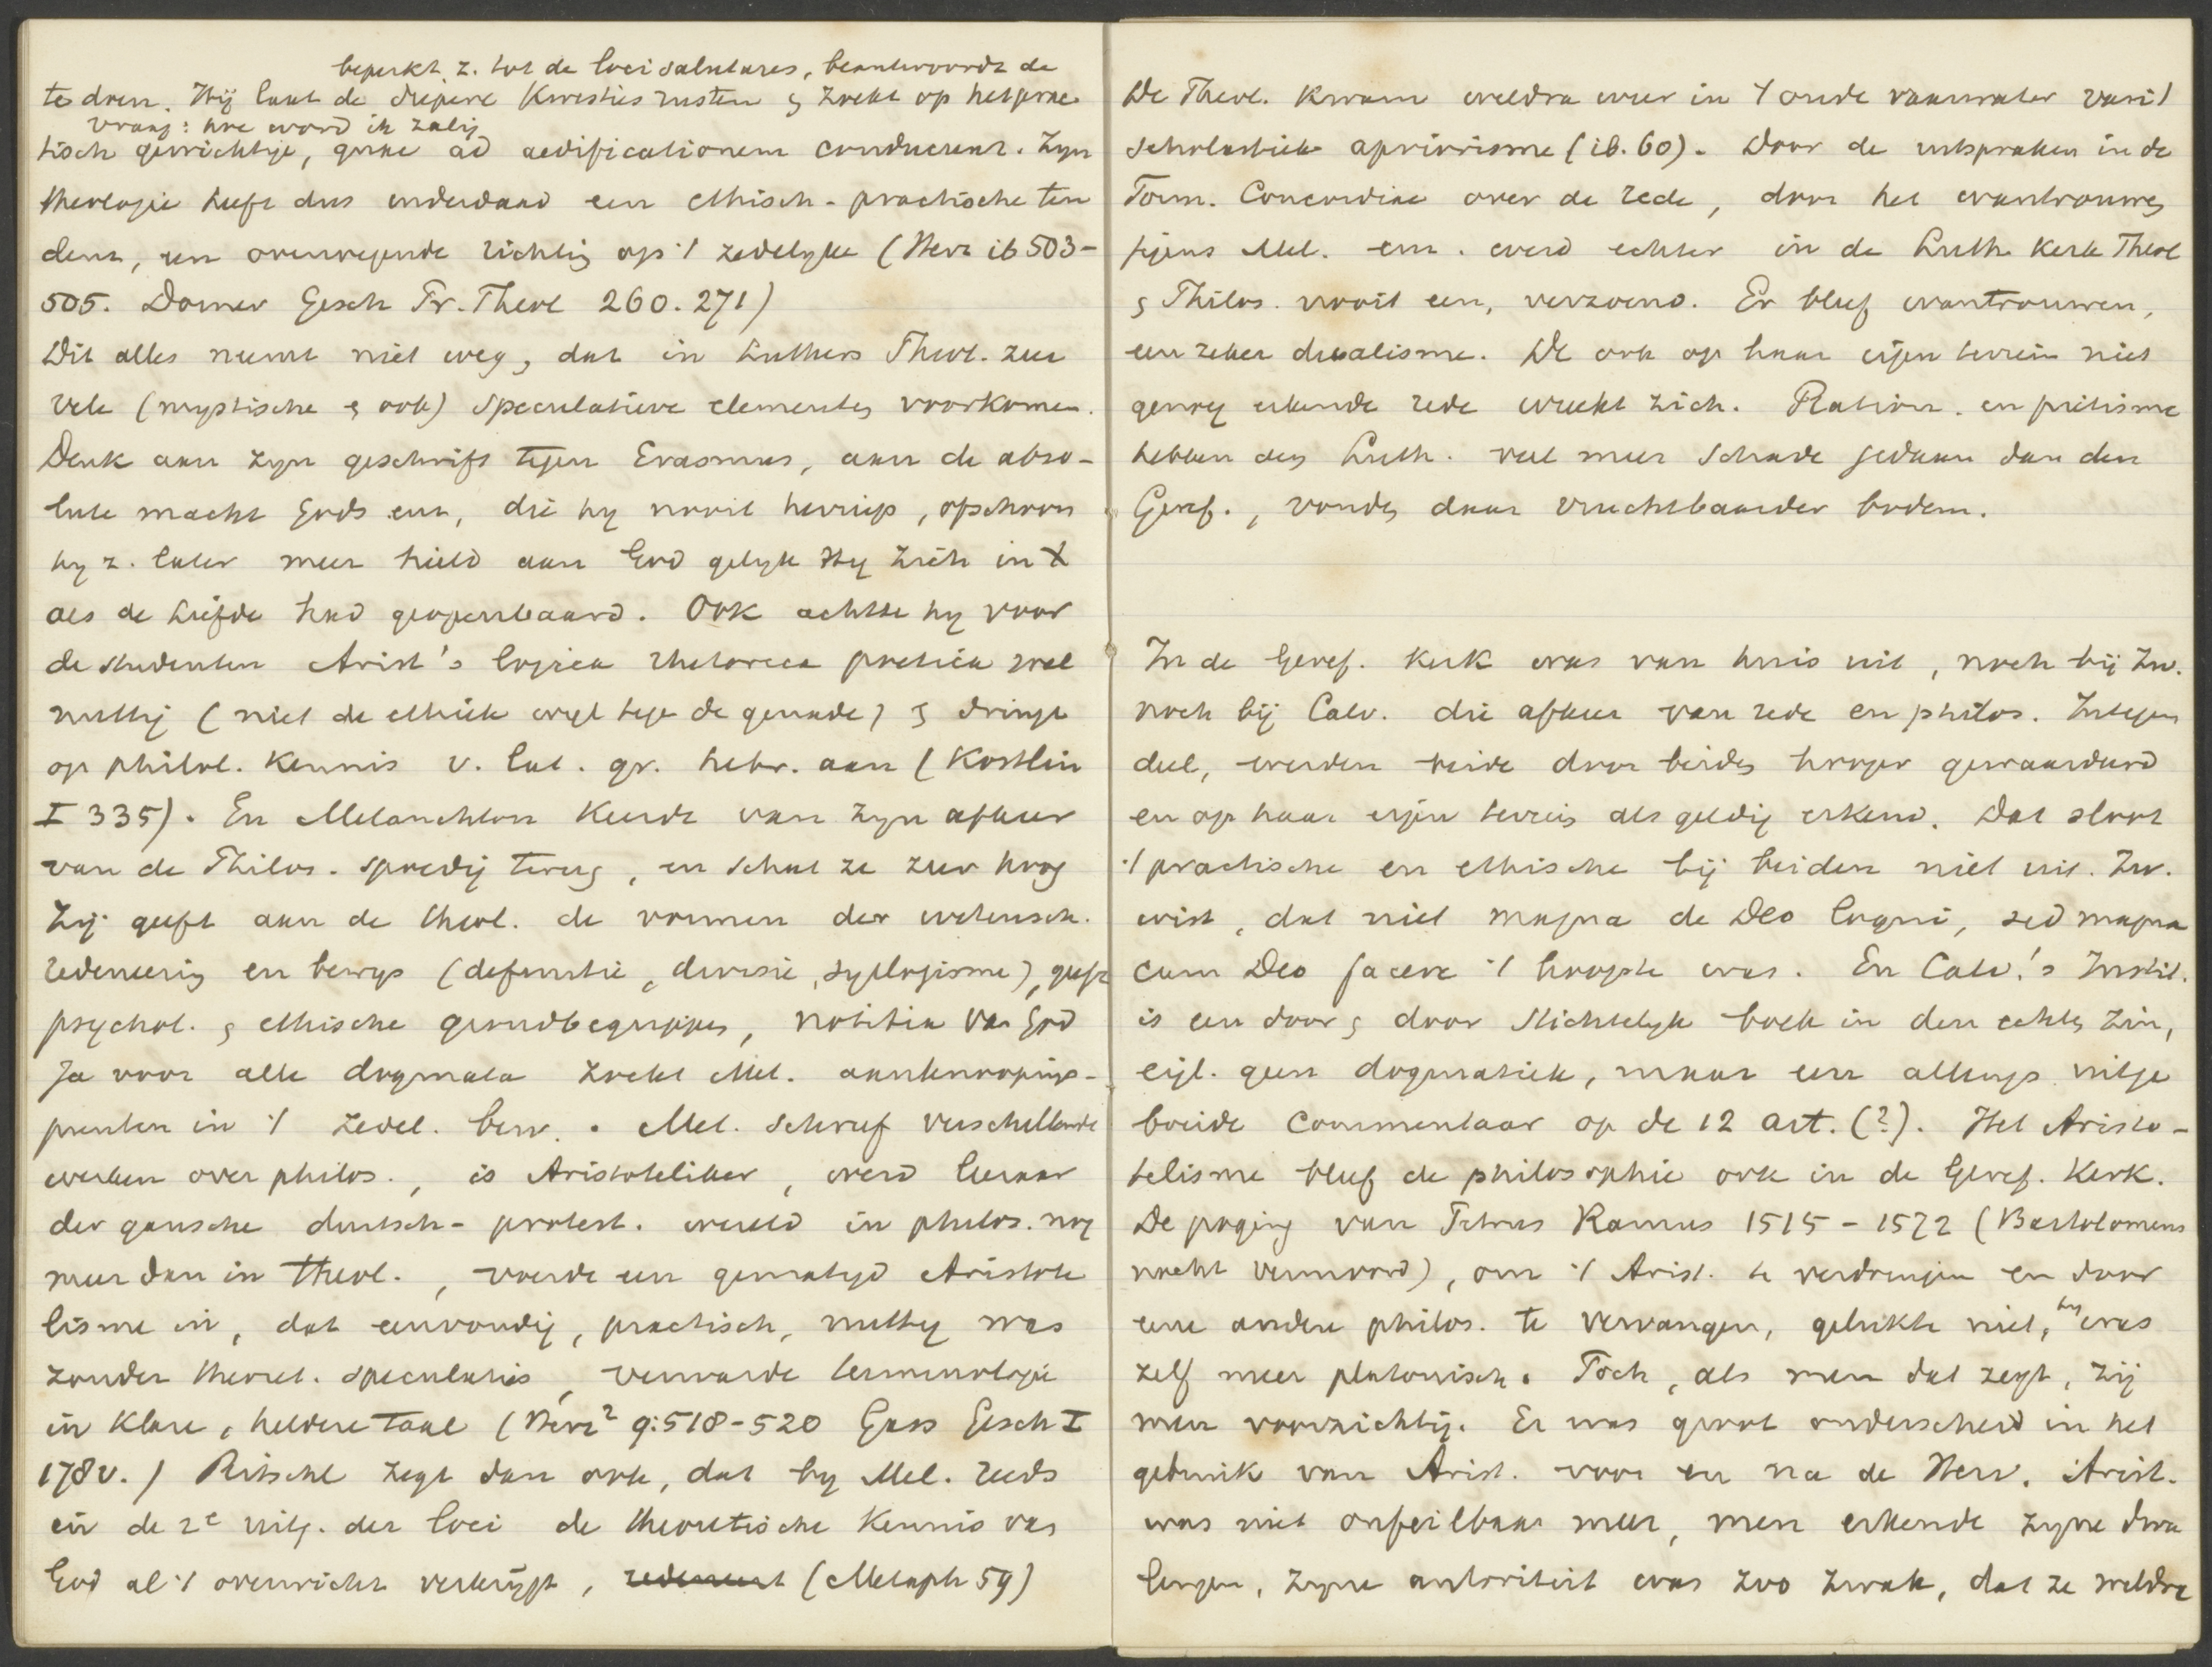 beperkt z. tot de loci salutares, beantwoordt de
te doen. Hij laat de diepere kwesties rusten & zoekt op hetgene
vraag: hoe word ik zalig
tisch gewichtige, quae ad aedificationem conducunt. Zijn
theologie heeft dus inderdaad een ethisch-practische ten
dens, een overwegende richting op 't zedelyke (Herz ib 503-
505. Dorner Gesch Pr. Theol 260. 271)
Dit alles neemt niet weg, dat in Luthers Theol. zeer
vele (mystische & ook) speculatieve elementen voorkomen.
Denk aan zyn geschrift tegen Erasmus, aan de abso-
lute macht Gods enz, die hy nooit herriep, ofschoon
hy z. later meer hield aan God gelyk Hy zich in X
als de Liefde had geopenbaard. Ook achtte hy voor
de studenten Arist's logica rhetorica poetica wel
nuttig (niet de ethiek wijl tege de genade) & dringt
op philol. kennis v. lat. gr. hebr. aan (Köstlin
I 335). En Melanchton keerde van zyn afkeer
van de Philos. spoedig terug, en schat ze zeer hoog
Zij geeft aan de theol. de vormen der wetensch.
redeneering en bewys (definitie, divisie, syllogisme), geeft
psychol. & ethische grondbegrippen, notitia van God
Ja voor alle dogmata zoekt Mel. aanknoopings-
punten in 't zedel. bew. . Mel. schreef verschillende
werken over philos., is Aristoteliker, werd leeraar
der gansche duitsch-protest. wereld in philos. nog
meer dan in theol., voerde een gematigd Aristote
lisme in, dat eenvoudig, practisch, nuttig was
zonder theoret. speculaties, verwarde terminologie
in klare, heldere taal (Herz² 9:518-520 Gass Gesch I
178 v.) Ritschl zegt dan ook, dat by Mel. reeds
in de 2e uitg. der loci de theoretische kennis van
God al 't overwicht verkrijgt, redeneert (Metaph 59)
De Theol. kwam weldra weer in 't oude vaarwater van 't
scholastiek apriorisme (ib. 60). Door de uitspraken in de
Form. Concordiae over de rede, door het wantrouwen
tegens Mel. enz. werd echter in de Luth. Kerk Theol
& Philos. nooit een, verzoend. Er bleef wantrouwen,
een zeker dualisme. De ook op haar eigen terrein niet
genoeg erkende rede wreekt zich. Ration. en piëtisme
hebben den Luth. veel meer schade gedaan dan den
Geref., vonden daar vruchtbaarder bodem.
In de Geref. Kerk was van huis uit, noch bij Zw.
noch bij Calv. die afkeer van rede en philos. Integen
deel, werden beide door beiden hooger gewaardeerd
en op haar eigen terrein als geldig erkend. Dat sloot
't practische en ethische bij beiden niet uit. Zw.
wist, dat niet magna de Deo loqui, sed magna
cum Deo facere 't hoogste was. En Calv.'s Instit.
is een door & door stichtelyk boek in den echten zin,
eigl. geen dogmatiek, maar een allengs uitge
breide Commentaar op de 12 art. (?). Het Aristo-
telisme bleef de philosophie ook in de Geref. Kerk.
De poging van Petrus Ramus 1515 - 1572 (Bartolomeus
nacht vermoord), om 't Arist. te verdringen en door
eene andere philos. te vervangen, gelukte niet, hy was
zelf meer platonisch. Toch, als men dat zegt, zij
men voorzichtig. Er was groot onderscheid in het
gebruik van Arist. voor en na de Herv. Arist.
was niet onfeilbaar meer, men erkende zyne dwa
lingen, zyne autoriteit was zoo zwak, dat ze weldra